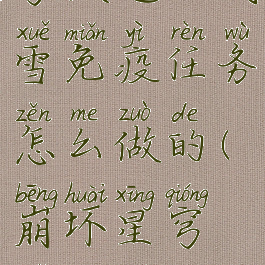 xuě miǎn yì rèn wù
雪免疫任务
zěn me zuò de
怎么做的(
bēng huài xīng qióng
崩坏星穹